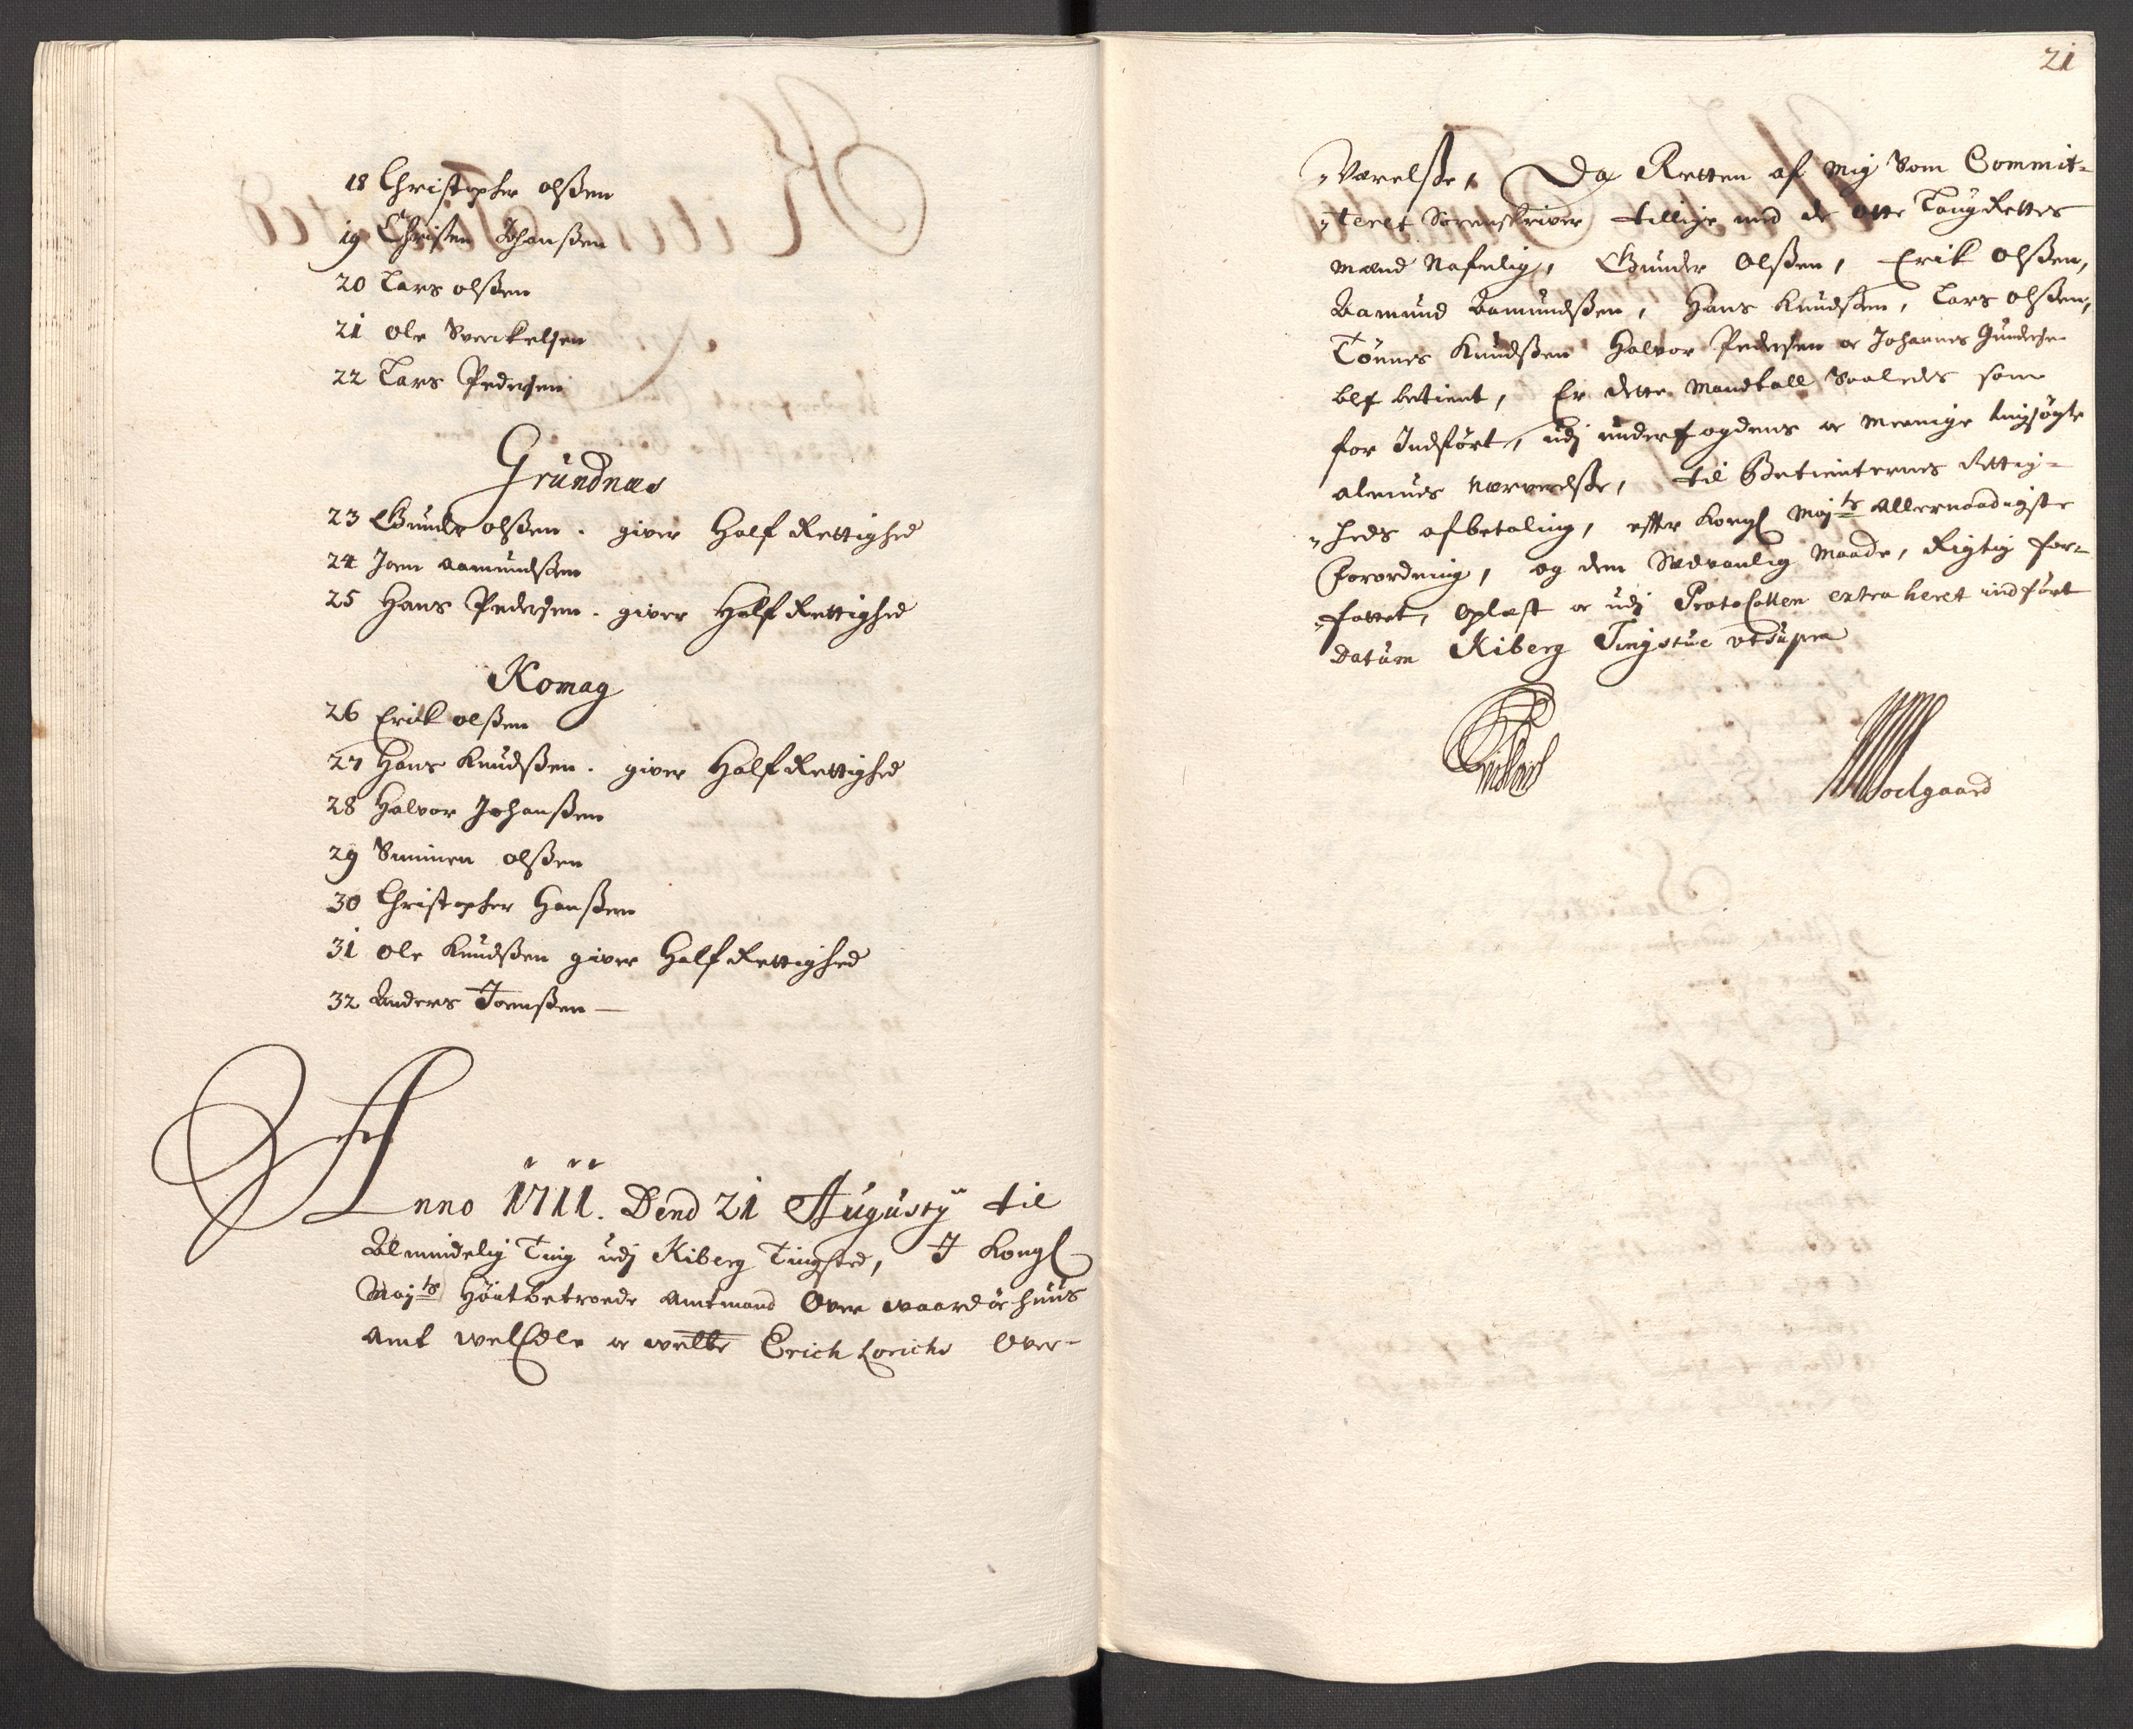 18 Christopher olßen
19 Christen Johanßen
20 Lars olßen
21 ole Sverckelsen
22 Lars Pedersen
Grundnæs
23 Gunder olßen. giver Half Rettighed
24 Joen Aamundßen
25 Hans Pedersen. giver Half Rettighed
Komag
26 Erick olßen
27 Hans Knudßen. giver Half Rettighed
28 Halvor Johanßen
29 Simmen olßen
30 Christopher Hanßen
31 ole Knudßen giver Half Rettighed
32 Anders Joenßen
Anno 1711. Dend 21 Augusty til
Almindelig Ting udj Kiberg Tingsted, I Kongl
Maj:ts Höutbetroede Amtmand Over Waardöehuus
Amt WelEdle Erich Lorichs Over-
21
Værelße, Da Retten af mig Som Commit-
teret Sorenskriver tillige med de otte Laug Rettes
mænd Nafnlig, Gunder Olßen, Erik olßen,
Aamund Aamundßen, Hans Knudßen, Lars olßen,
Tönnes Knudßen Halvor Pedersen oc Johannes Gundersen
blef betient, Er dette Mandtall Saaledes som
for Indfört, udj underfogdens oc meenige tingsögte
almues nærverelße, til Betienternes Rettig-
heds afbetaling, effter Kongl Maj:ts Allernaadigste
Forordning, og dem Sædvanlig Maade, Rigtig for-
fattet, oplæst oc udj Protocollen extraheret indfört
Datum Kiberg Tingstue ut supra